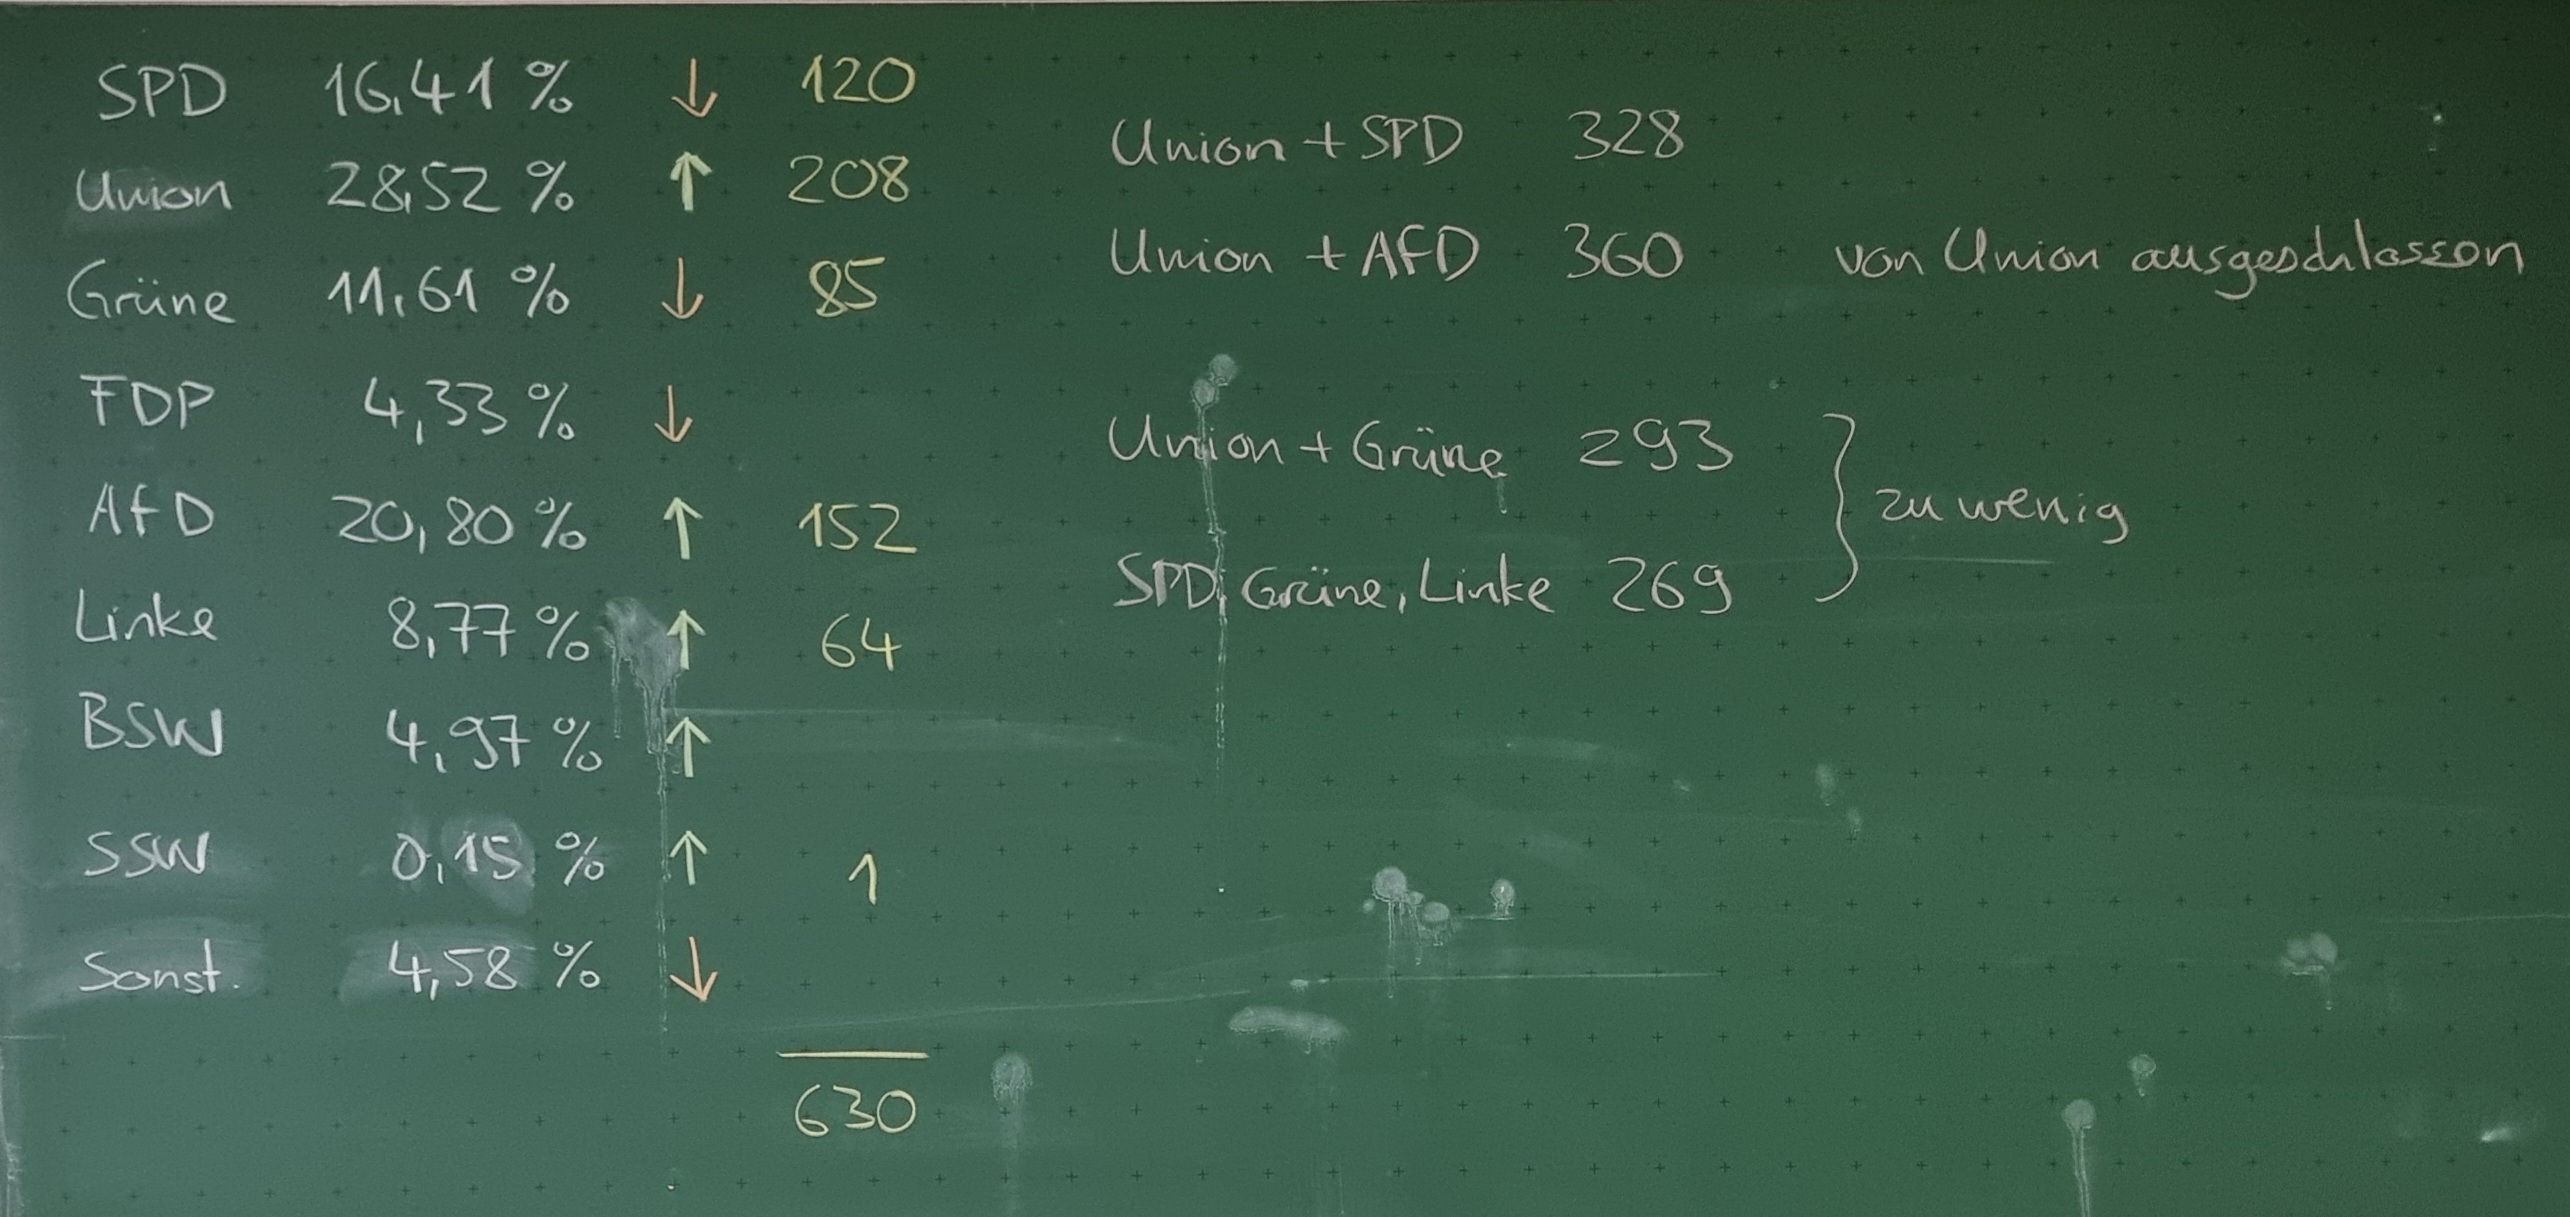 SPD 16,41 % ↓ 120
Union 28,52 % ↑ 208
Grüne 11,61 % ↓ 85
FDP 4,33 % ↓
AfD 20,80 % ↑ 152
Linke 8,77 % ↑ 64
BSW 4,97 % ↑
SSW 0,15 % ↑ 1
Sonst. 4,58 % ↓
630
Union + SPD 328
Union + AfD 360 von Union ausgeschlossen
Union + Grüne 293
SPD, Grüne, Linke 269
} zu wenig